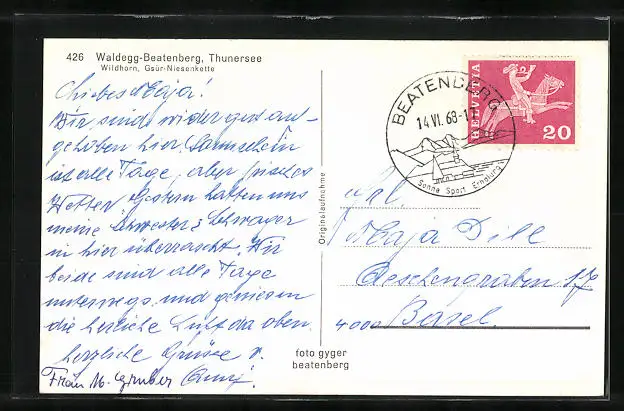 426 Waldegg-Beatenberg, Thunersee
Wildhorn, Gsür-Niesenkette
Liebes Maja!
Wir sind wider gut auf-
gehoben hier. Sonnschein
ist alle Tage, aber frisches
Wetter. Gestern hatten uns
meine Schwester & Schwager
in hier überrascht. Wir
beide sind alle Tage
unterwegs und geniesen
die herliche Luft da oben.
herzliche Grüsse v.
Frau M. Gruber
Originalaufnahme
foto gyger
beatenberg
BEATENBERG
14.VI.68-1
Sonne Sport Erholung
HELVETIA
20
Frl.
Maja Dill
Aeschengraben 17
4000 Basel.